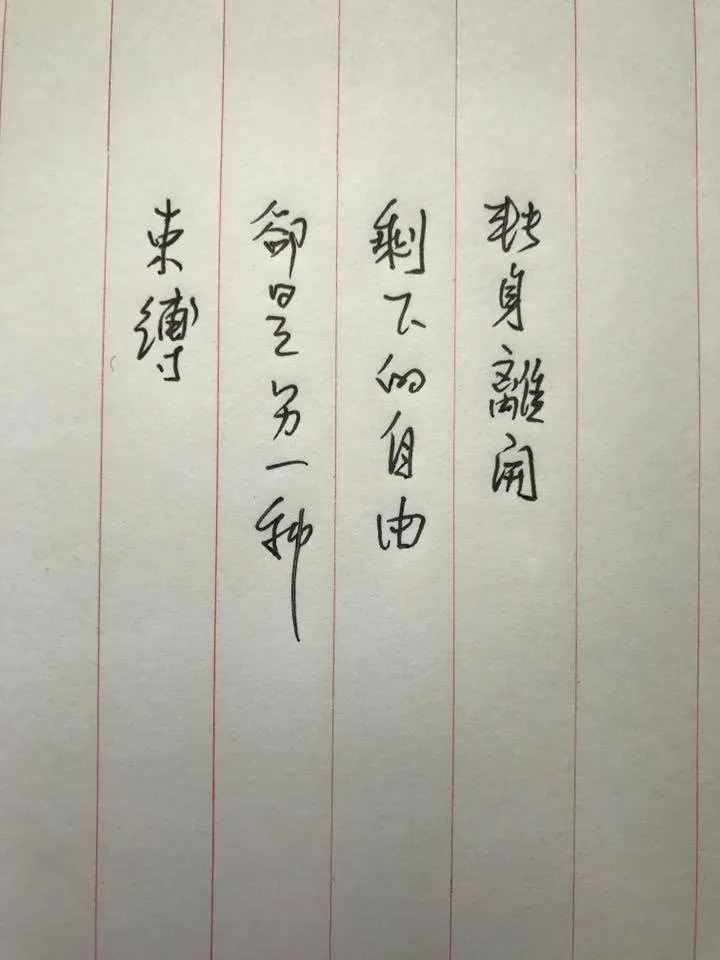 轉身離開
剩下的自由
卻是另一种
束縛